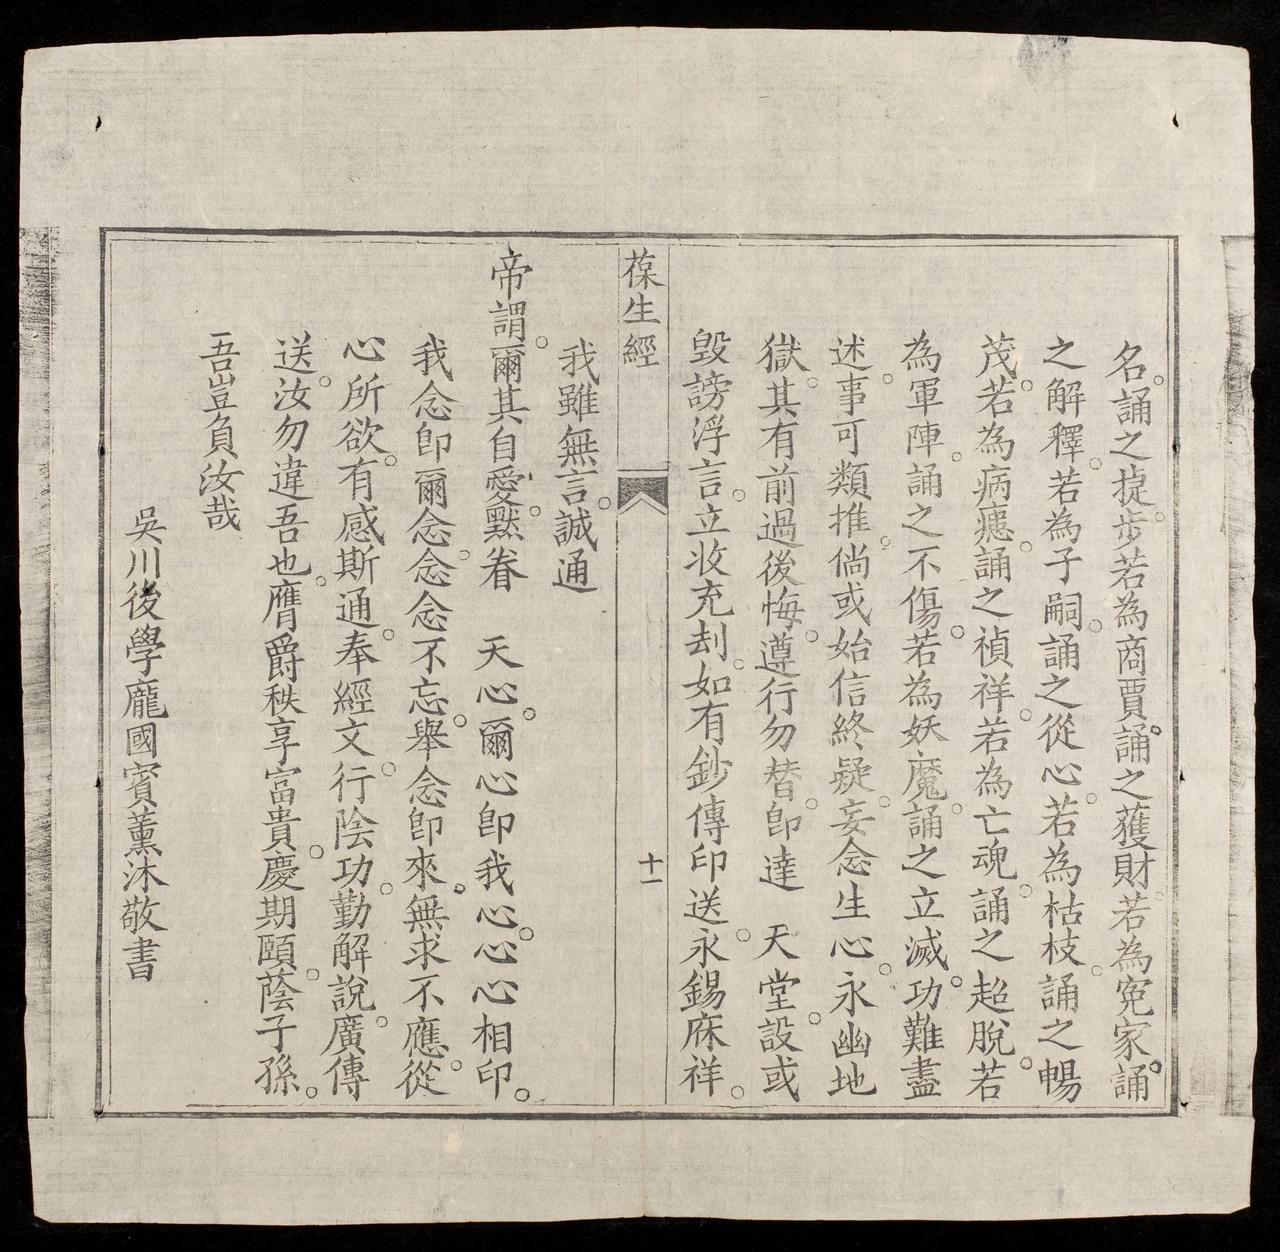 名。誦之捷步。若為商賈。誦之獲財。若為寃家。誦
之解釋。若為子嗣。誦之從心。若為枯枝。誦之暢
茂。若為病瘧。誦之禎祥。若為亡魂。誦之超脫。若
為軍陣。誦之不傷。若為妖魔。誦之立滅。功難盡
述。事可類推。倘或始信終疑。妄念生心。永幽地
獄。其有前過後悔。遵行勿替。卽達 天堂。設或
毀謗浮言。立收充刦。如有鈔傳印送。永錫庥祥。
葆生經
十一
我雖無言。誠通
帝謂。爾其自愛。默眷 天心。爾心卽我心。心心相印。
我念卽爾念。念念不忘。舉念卽來。無求不應。從
心所欲。有感斯通。奉經文。行陰功。勤解說。廣傳
送。汝勿違吾也。膺爵秩享富貴。慶期頤。蔭子孫。
吾豈負汝哉
吳川後學龐國賓薰沐敬書